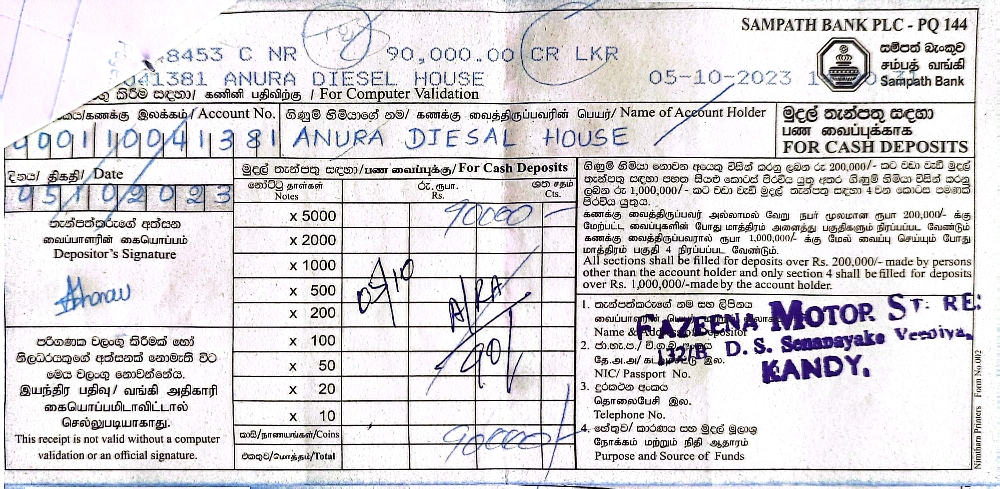 SAMPATH BANK PLC - PQ 144
8453 C NR 90,000.00 CR LKR
සම්පත් බැංකුව
சம்பத் வங்கி
Sampath Bank
041381 ANURA DIESEL HOUSE 05-10-2023
කිරීම සඳහා/ கணினி பதிவிற்கு / For Computer Validation
கணக்கு இலக்கம் / Account No. ගිණුම් හිමියාගේ නම/ கணக்கு வைத்திருப்பவரின் பெயர்/ Name of Account Holder
00110041381 ANURA DIESAL HOUSE
මුදල් තැන්පතු සඳහා
பண வைப்புக்காக
FOR CASH DEPOSITS
දිනය/ திகதி/ Date
05102023
මුදල් තැන්පතු සඳහා/பண வைப்புக்கு/For Cash Deposits
නෝට්ටු தாள்கள் රු. ரூபா. ශත சதம்
Notes Rs. Cts.
x 5000 90000 -
x 2000
x 1000
x 500
x 200
x 100
x 50
x 20
x 10
කාසි/நாணயங்கள்/Coins
එකතුව/மொத்தம்/Total 90000/-
05/10
A/RA
90/
තැන්පත්කරුගේ අත්සන
வைப்பாளரின் கையொப்பம்
Depositor's Signature
පරිගණක වලංගු කිරීමක් හෝ
නිලධරයකුගේ අත්සනක් නොමැති විට
මෙය වලංගු නොවන්නේය.
இயந்திர பதிவு/ வங்கி அதிகாரி
கையொப்பமிடாவிட்டால்
செல்லுபடியாகாது.
This receipt is not valid without a computer
validation or an official signature.
ගිණුම් හිමියා නොවන අයෙකු විසින් කරනු ලබන රු 200,000/- කට වඩා වැඩි මුදල්
තැන්පතු සඳහා පහත සියළු කොටස් පිරවිය යුතු අතර ගිණුම් හිමියා විසින් කරනු
ලබන රු 1,000,000/- කට වඩා වැඩි මුදල් තැන්පතු සඳහා 4 වන කොටස පමණක්
පිරවිය යුතුය.
கணக்கு வைத்திருப்பவர் அல்லாமல் வேறு நபர் மூலமான ரூபா 200,000/- க்கு
மேற்பட்ட வைப்புகளின் போது மாத்திரம் அனைத்து பகுதிகளும் நிரப்பப்பட வேண்டும்
கணக்கு வைத்திருப்பவரால் ரூபா 1,000,000/- க்கு மேல் வைப்பு செய்யும் போது
மாத்திரம் பகுதி 4 நிரப்பப்பட வேண்டும்.
All sections shall be filled for deposits over Rs. 200,000/- made by persons
other than the account holder and only section 4 shall be filled for deposits
over Rs. 1,000,000/-made by the account holder.
1. තැන්පත්කරුගේ නම සහ ලිපිනය
வைப்பாளரின்
Name & Address of Depositor
FAZEENA MOTOR ST: RE:
132/B, D. S. Senanayake Veediya,
KANDY.
2. ජා.හැ.ප./
தே.அ.அ/
NIC/ Passport No.
3. දුරකථන අංකය
தொலைபேசி இல.
Telephone No.
4. හේතුව/ කාරණය සහ මුදල් මූලාශ්‍ර
நோக்கம் மற்றும் நிதி ஆதாரம்
Purpose and Source of Funds
Nimhara Printers Form No.002